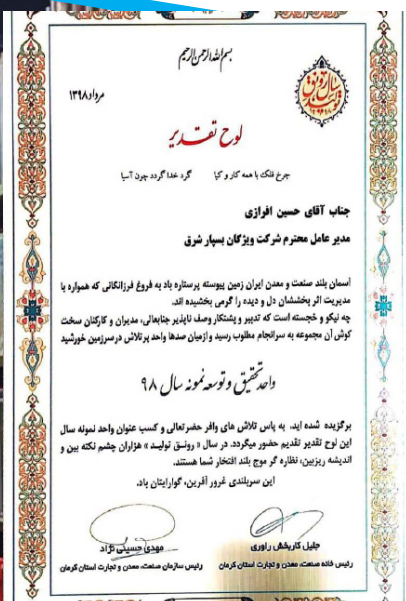 بسم الله الرحمن الرحیم
سال رونق تولید
مرداد ۱۳۹۸
لوح تقدیر
چرخ فلک با همه کار و کیا گرد خدا گردد چون آسیا
جناب آقای حسین افرازی
مدیر عامل محترم شرکت ویژگان بسپار شرق
آسمان بلند صنعت و معدن ایران زمین پیوسته پرستاره باد به فروغ فرزانگانی که همواره با
مدیریت اثر بخششان دل و دیده را گرمی بخشیده اند.
چه نیکو و خجسته است که تدبیر و پشتکار وصف ناپذیر جنابعالی، مدیران و کارکنان سخت
کوش آن مجموعه به سرانجام مطلوب رسید و ازمیان صدها واحد پرتلاش درسرزمین خورشید
واحد تحقیق و توسعه نمونه سال ۹۸
برگزیده شده اید. به پاس تلاش های وافر حضرتعالی و کسب عنوان واحد نمونه سال
این لوح تقدیر تقدیم حضور میگردد. در سال « رونق تولید » هزاران چشم نکته بین و
اندیشه ریزبین، نظاره گر موج بلند افتخار شما هستند.
این سربلندی غرور آفرین، گوارایتان باد.
جلیل کاربخش راوری
رئیس خانه صنعت، معدن و تجارت استان کرمان
مهدی حسینی نژاد
رئیس سازمان صنعت، معدن و تجارت استان کرمان